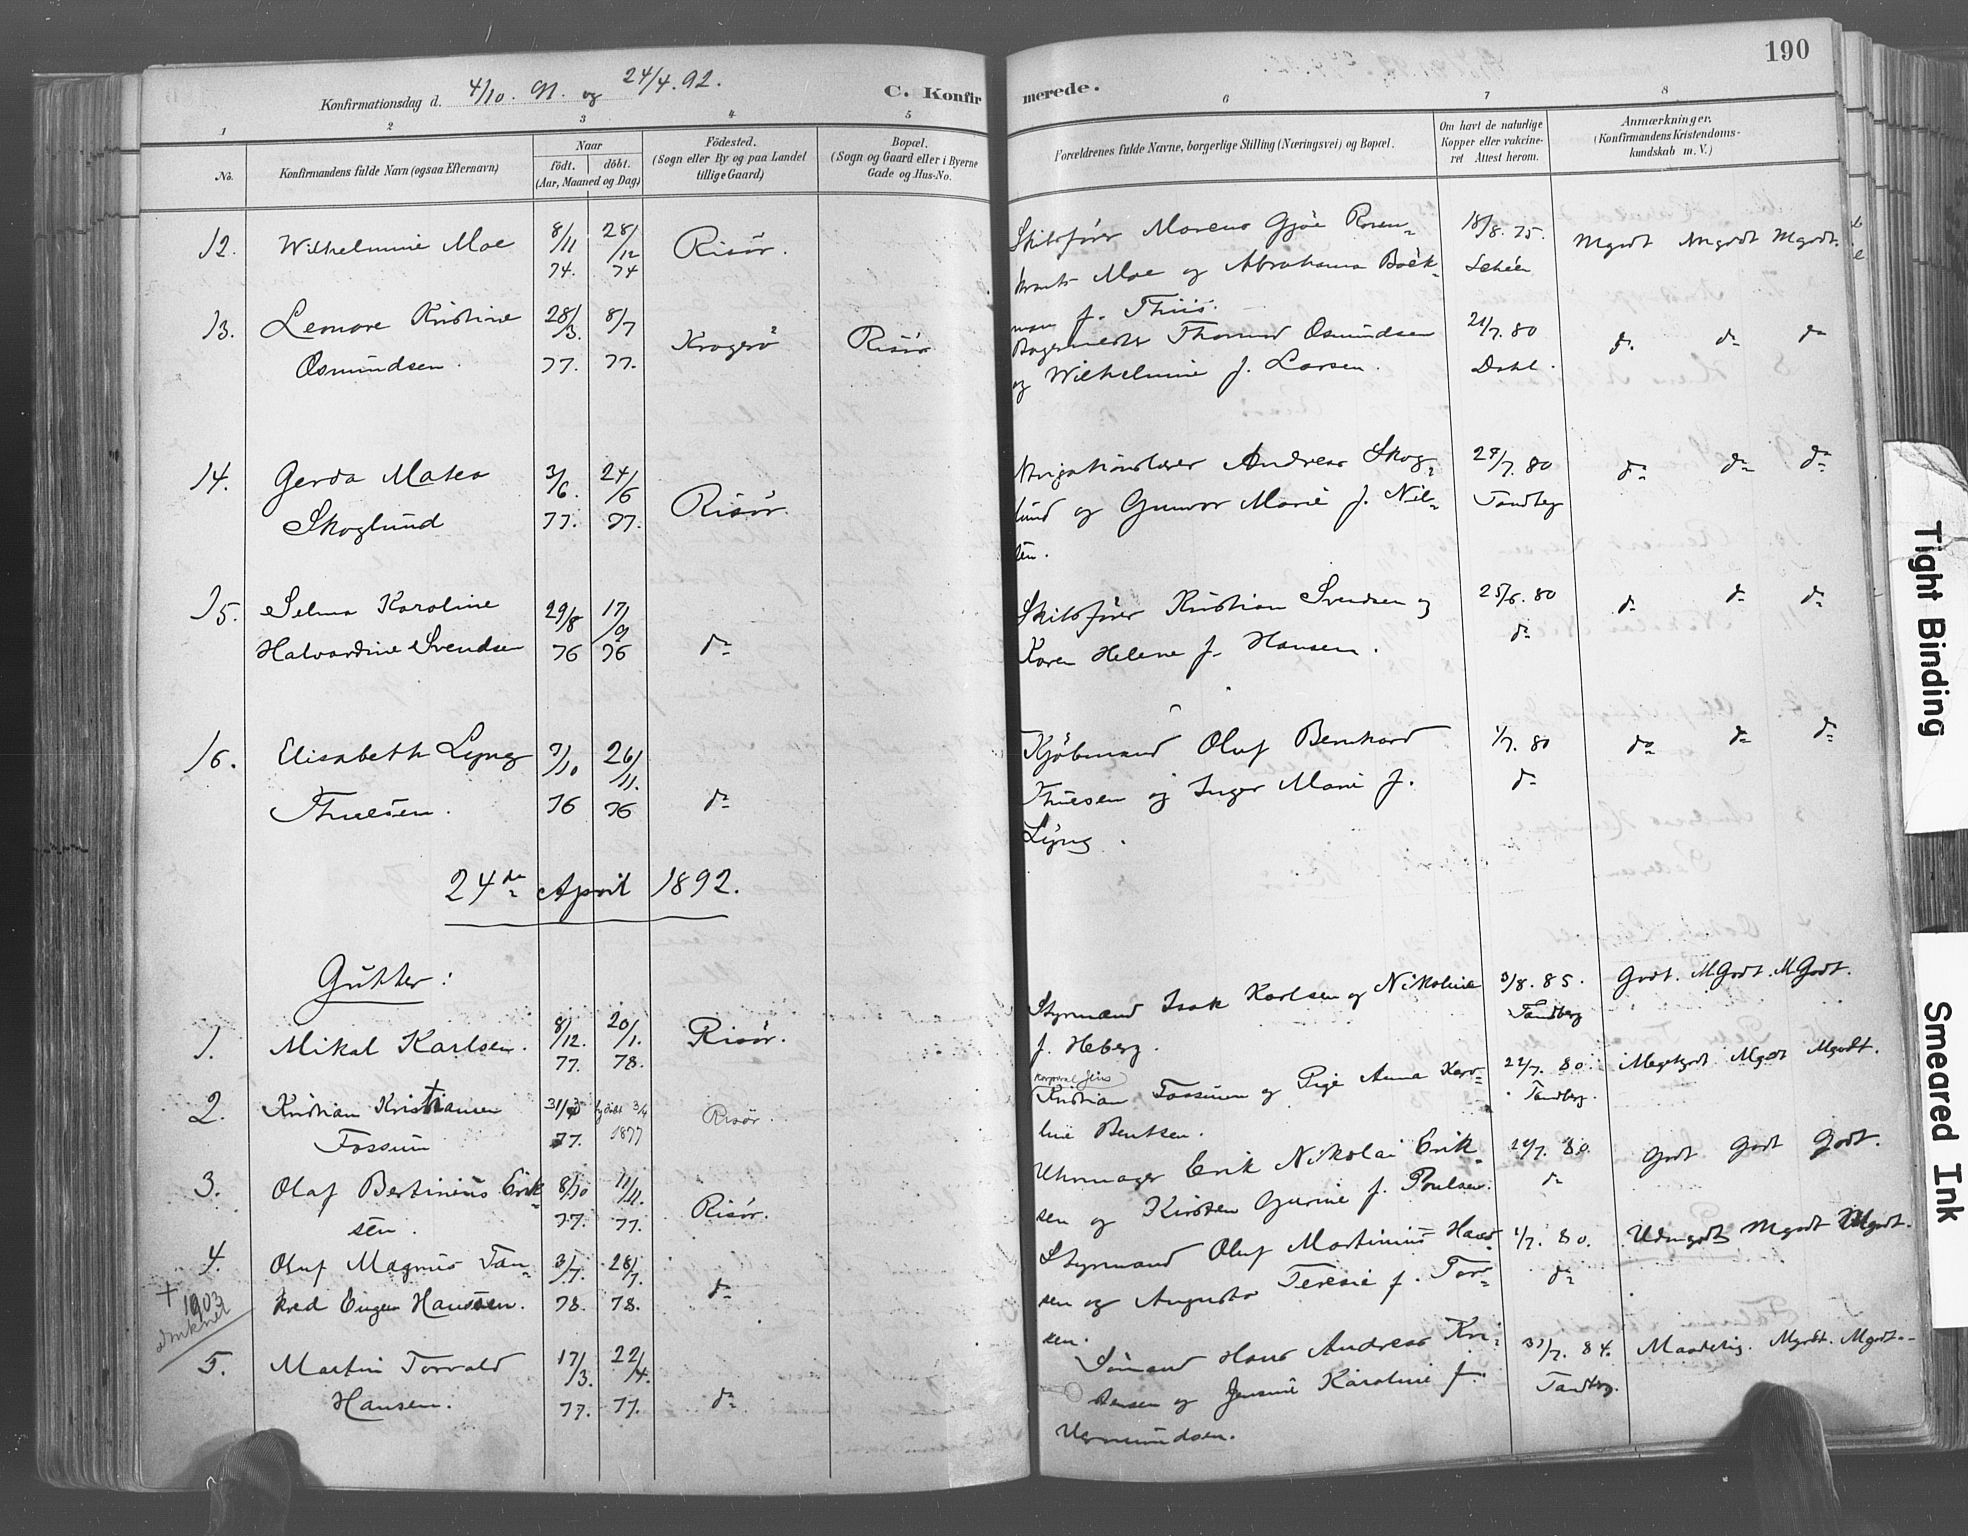 190
Konfirmationsdag d. 4/10. 91. og 24/4. 92.
C. Konfirmerede.
1 2 3 4 5 6 7 8
No.
Konfirmandens fulde Navn (ogsaa Efternavn)
Naar
födt. döbt.
(Aar, Maaned og Dag)
Födested.
(Sogn eller By og paa Landet
tillige Gaard)
Bopæl.
(Sogn og Gaard eller i Byerne
Gade og Hus-No.
Forældrenes fulde Navne, borgerlige Stilling (Næringsvei) og Bopæl.
Om havt de naturlige
Kopper eller vakcine-
ret Attest herom.
Anmærkninger.
(Konfirmandens Kristendoms-
kundskab m. V.)
12. Wilhelmine Moe 8/11 74. 28/12 74 Risör.
Skibsfører Morens Gjöe Rosen-
krants Moe og Abrahama Boëk-
man f. Thiis.
18/8. 75. Mgodt Mgodt Mgodt.
Schéen
13. Leonore Kristine
Osmundsen.
28/3. 77. 8/7 77. Kragerö Risör
Bagermester Thomas Osmundsen
og Wilhelmine f. Larsen.
21/7. 80 do. do do
Dahl.
14. Gerda Matea
Skoglund
3/6. 77. 24/6 77. Risör.
Navigationslærer Andreas Skog-
lund og Gunvor Marie f. Niel-
sen.
29/7. 80 do do do
Tandberg
15. Selma Karoline
Halvardine Svendsen
29/8 76 17/9 76 do
Skibsfører Kristian Svendsen og
Karen Helene f. Hansen.
25/6. 80 do do do
do
16. Elisabeth Lyng
Thuesen.
9/10 76 26/11. 76 do
Kjöbmand Oluf Bernhard
Thuesen og Inger Marie f.
Lyng.
1/7. 80 do do do
do
24de April 1892.
Gutter:
1. Mikal Karlsen. 8/12. 77. 20/1. 78. Risör.
Styrmand Isak Karlsen og Nikoline
f. Heberg.
3/8. 85. Godt. MGodt. MGodt.
Tandberg
2. Kristian Kristiansen
Fossum
31/3 77. hjdöbt 3/4 1877 Risör.
Korporal Jens
Kristian Fossum og Pige Anna Karo-
line Bentsen.
22/7. 80. Megetgodt Mgodt Mgodt.
Tandberg.
3. Olaf Bertinius Erik-
sen.
8/10 77. 11/11. 77. Risör.
Uhrmager Erik Nikolai Erik-
sen og Kirsten Gurine f. Poulsen.
29/7. 80. Godt Godt Godt.
do
4. Oluf Magnus Tan-
kred Eugen Hanssen.
3/7. 78. 28/7. 78. do
† 1903
druknet
Styrmand Oluf Martinius Hans-
sen og Augusta Teresie f. Tor-
sen.
1/7. 80. Udmgodt Mgodt Mgodt.
do
5. Martin Torvald
Hansen.
17/3. 77. 22/4. 77. do
Sömand Hans Andreas Kri-
stensen og Jensine Karoline f.
Vermundsen.
31/7. 84. Maadelig. Mgodt. Mgodt.
Tandbrg.
Tight Binding
Smeared Ink